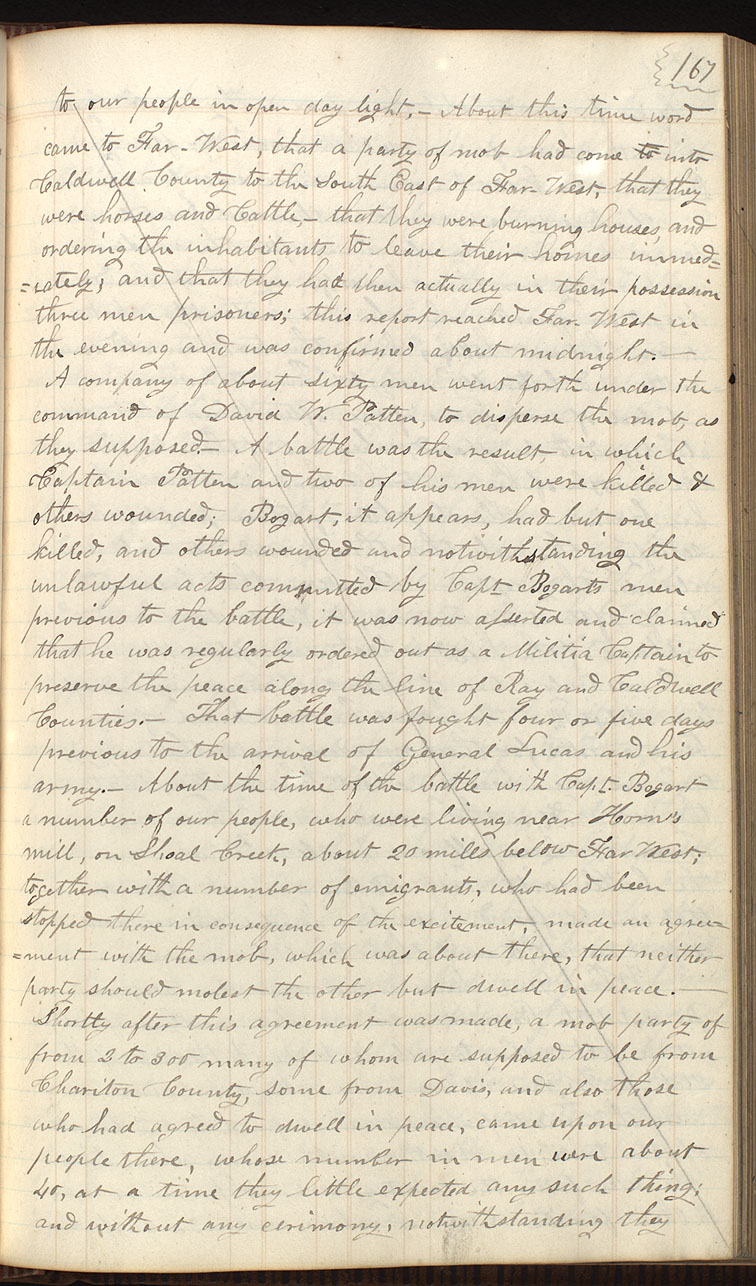 167
to our people in open day light.— About this time word
came to Far-West, that a party of mob had come to into
Caldwell County to the South East of Far-West, that they
were horses and Cattle,— that they were burning houses, and
ordering the inhabitants to leave their homes immed=
=iately; and that they had then actually in their possession
three men prisoners; this report reached Far-West in
the evening and was confirmed about midnight.—
A company of about sixty men went forth under the
command of David W. Patten, to disperse the mob, as
they supposed.— A battle was the result, in which
Captain Patten and two of his men were killed &
others wounded; Bogart, it appears, had but one
killed, and others wounded and notwithstanding the
unlawful acts committed by Capt. Bogarts men
previous to the battle, it was now asserted and claimed
that he was regularly ordered out as a Militia Captain to
preserve the peace along the line of Ray and Caldwell
Counties.— That battle was fought four or five days
previous to the arrival of General Lucas and his
army.— About the time of the battle with Capt. Bogart
a number of our people, who were living near Horn's
mill, on Shoal Creek, about 20 miles below Far West;
together with a number of emigrants, who had been
stopped there in consequence of the excitement, made an agree=
=ment with the mob, which was about there, that neither
party should molest the other but dwell in peace.—
Shortly after this agreement was made, a mob party of
from 2 to 300 many of whom are supposed to be from
Chariton County, some from Davis, and also those
who had agreed to dwell in peace, came upon our
people there, whose number in men were about
40, at a time they little expected any such thing;
and without any cerimony, notwithstanding they